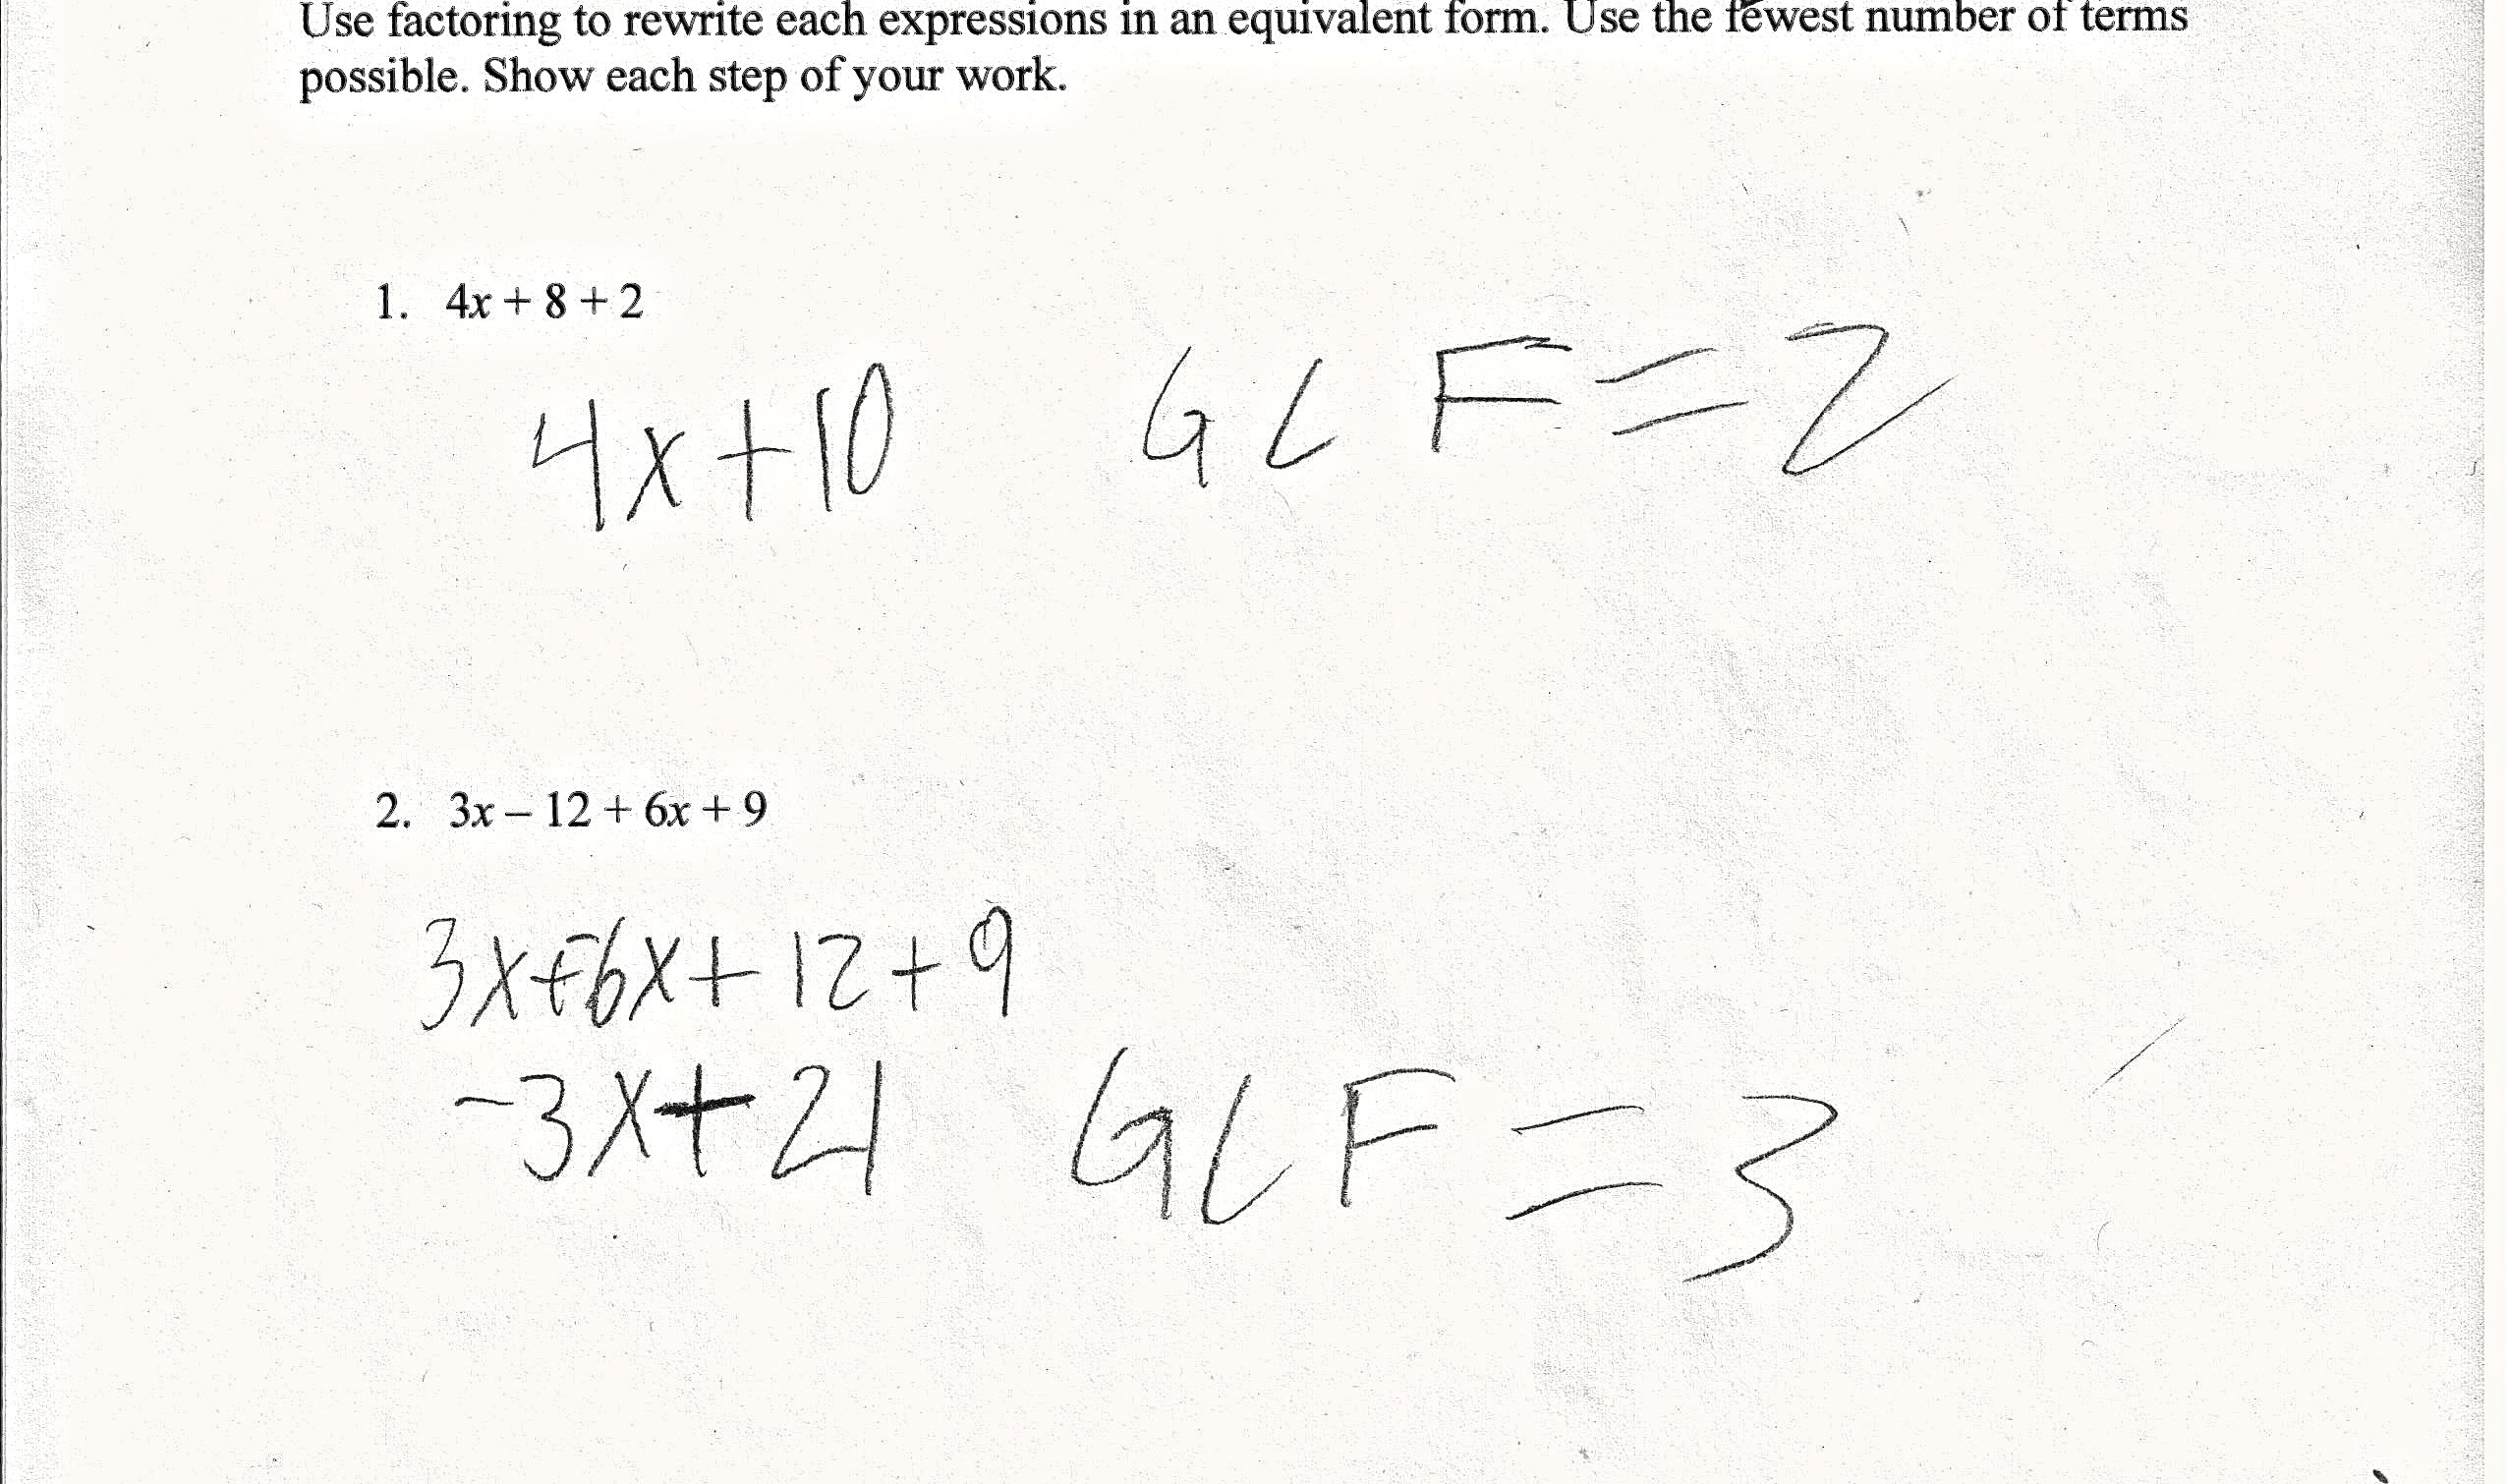 Use factoring to rewrite each expressions in an equivalent form. Use the fewest number of terms
possible. Show each step of your work.
1. 4x + 8 + 2
4x+10 GCF=2
2. 3x – 12 + 6x + 9
3x+-6x+12+9
-3x+21 GCF=3